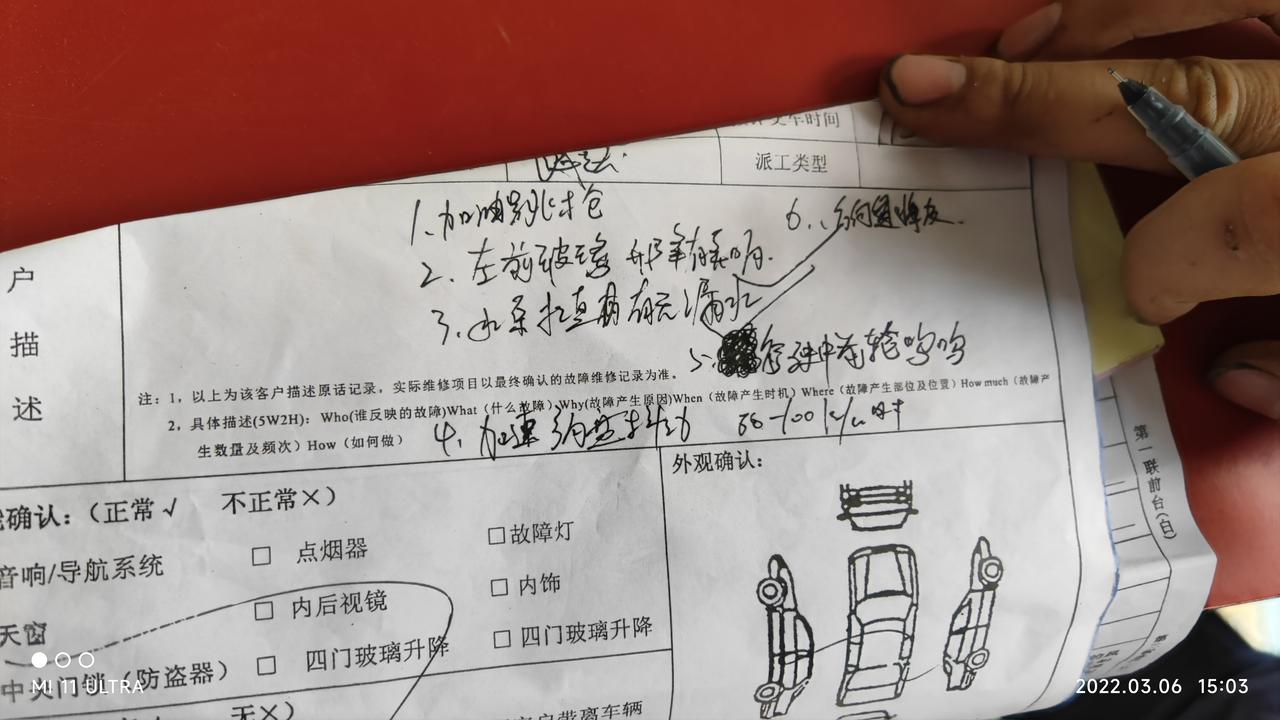 交车时间
派工类型
户
描
述
1.加油
2.左前玻璃 有异响.
3.水泵 有无漏水
6.
5. 行驶中 轮呜呜
注：1，以上为该客户描述原话记录，实际维修项目以最终确认的故障维修记录为准。
2，具体描述(5W2H)：Who(谁反映的故障)What（什么故障）Why(故障产生原因)When（故障产生时机）Where（故障产生部位及位置）How much（故障产
生数量及频次）How（如何做）
4.加速方向盘抖动 -100
确认：（正常√ 不正常×）
外观确认：
音响/导航系统
□ 点烟器
□故障灯
天窗
□ 内后视镜
□内饰
中央门锁（防盗器）
□ 四门玻璃升降
□四门玻璃升降
无×）
客户带离车辆
第一联前台（白）
MI 11 ULTRA
2022.03.06 15:03